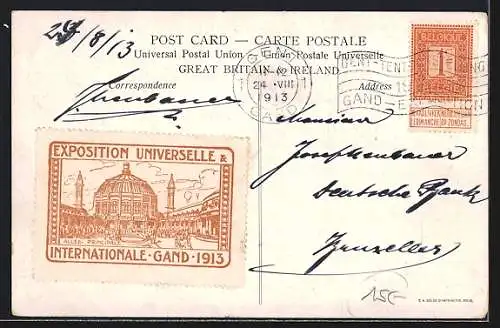 24/8/13
POST CARD — CARTE POSTALE
Universal Postal Union Union Postale Universelle
GREAT BRITAIN & IRELAND
Correspondence
Address
GENT
24 VIII
1913
GAND
GENT-TENTOONSTELLING
GAND - EXPOSITION
BELGIQUE
1
BELGIË
Monsieur
Deutsche Bank
Bruxelles
EXPOSITION UNIVERSELLE &
INTERNATIONALE · GAND · 1913
15€